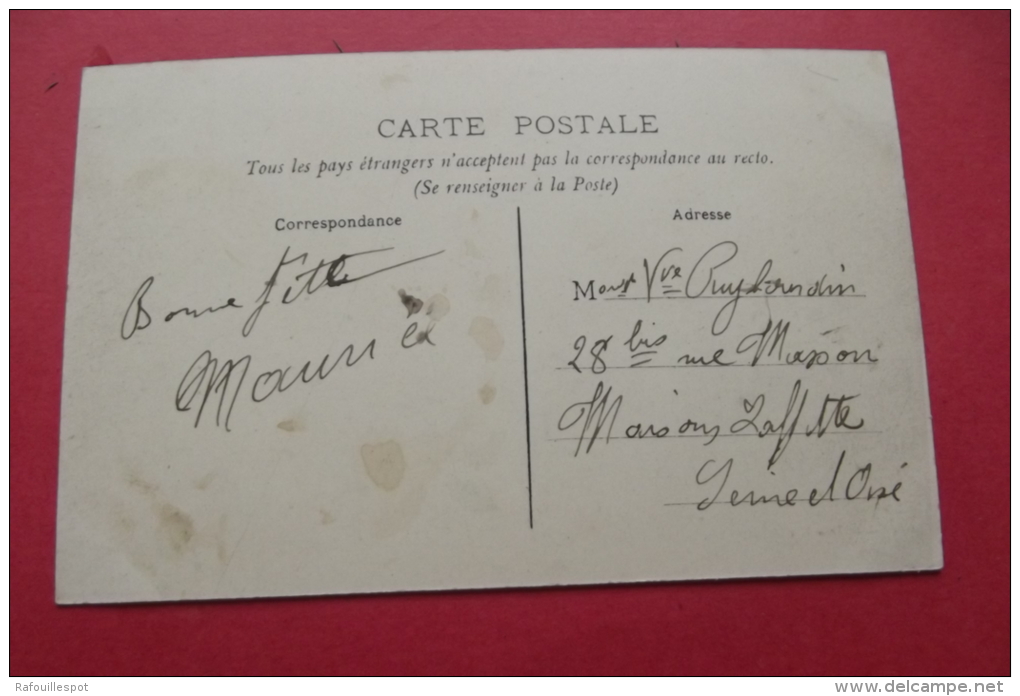 CARTE POSTALE
Tous les pays étrangers n'acceptent pas la correspondance au recto.
(Se renseigner à la Poste)
Correspondance
Adresse
Bonne fête
Maurice
Vve
28 bis rue
Maisons Laffitte
Seine et Oise
Rafouillespot
www.delcampe.net